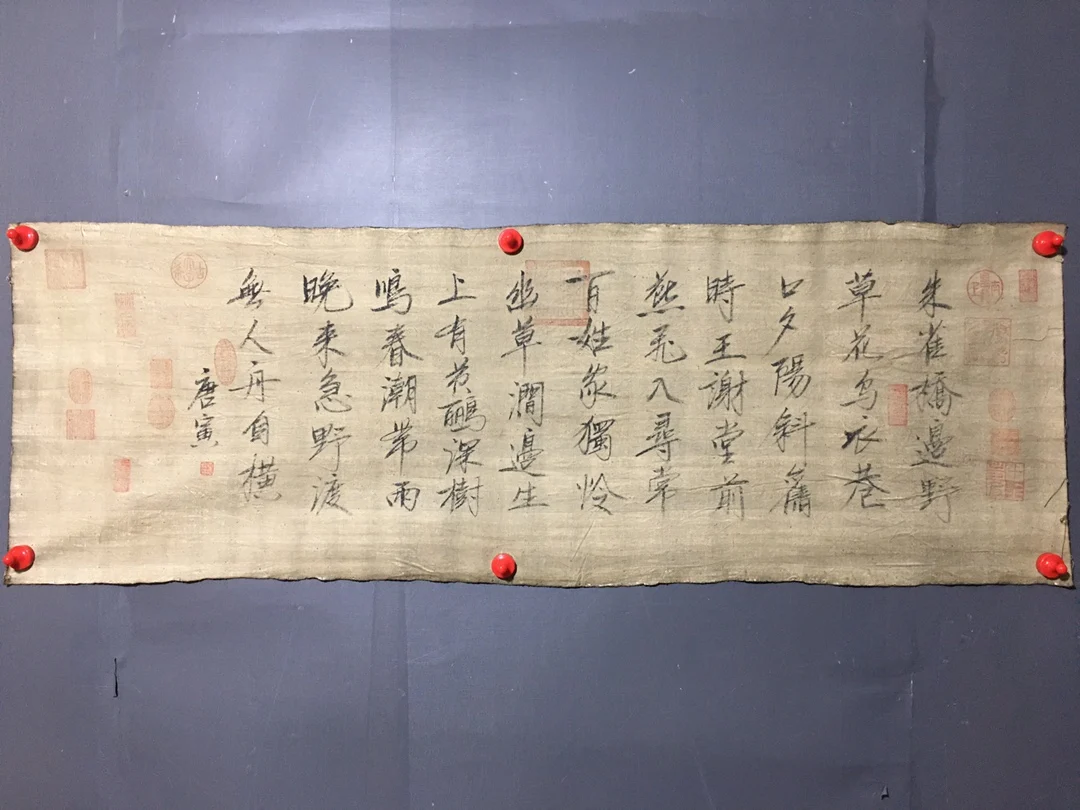 朱雀橋邊野
草花烏衣巷
口夕陽斜舊
時王謝堂前
燕飛入尋常
百姓家獨怜
幽草澗邊生
上有黄鸝深樹
鳴春潮帶雨
晚来急野渡
無人舟自橫
唐寅